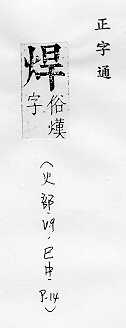 正字通
焊
俗熯
字
(火部,V9,巳中,P.14)